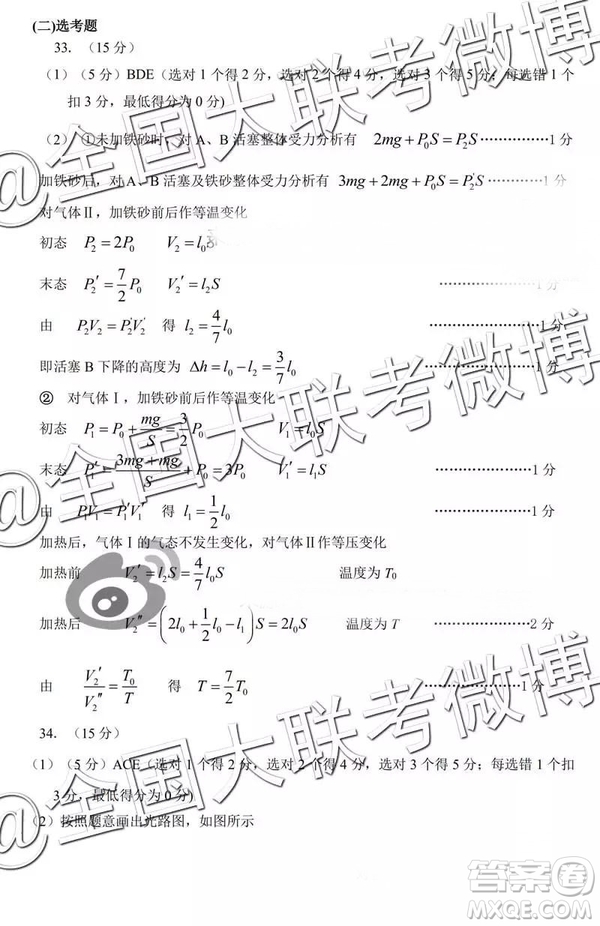 (二)选考题
33. （15 分）
（1）（5 分）BDE（选对 1 个得 2 分，选对 2 个得 4 分，选对 3 个得 5 分；每选错 1 个
扣 3 分，最低得分为 0 分）
（2）①未加铁砂时，对 A、B 活塞整体受力分析有 2mg+P₀S=P₂S ……………1 分
加铁砂后，对 A、B 活塞及铁砂整体受力分析有 3mg+2mg+P₀S=P₂'S …………1 分
对气体Ⅱ，加铁砂前后作等温变化
初态 P₂=2P₀ V₂=l₀S
末态 P₂'=7/2 P₀ V₂'=l₂S ……………1 分
由 P₂V₂=P₂'V₂' 得 l₂=4/7 l₀ ……………1 分
即活塞 B 下降的高度为 Δh=l₀-l₂=3/7 l₀ ……………1 分
② 对气体Ⅰ，加铁砂前后作等温变化
初态 P₁=P₀+mg/S=3/2 P₀ V₁=l₀S
末态 P₁'=(3mg+mg)/S+P₀=3P₀ V₁'=l₁S ……………1 分
由 P₁V₁=P₁'V₁' 得 l₁=1/2 l₀ ……………1 分
加热后，气体Ⅰ的气态不发生变化，对气体Ⅱ作等压变化
加热前 V₂'=l₂S=4/7 l₀S 温度为 T₀
加热后 V₂''=(2l₀+1/2 l₀-l₁)S=2l₀S 温度为 T ……………2 分
由 V₂'/V₂''=T₀/T 得 T=7/2 T₀ ……………1 分
34. （15 分）
（1）（5 分）ACE（选对 1 个得 2 分，选对 2 个得 4 分，选对 3 个得 5 分；每选错 1 个扣
3 分，最低得分为 0 分）
（2）按照题意画出光路图，如图所示
@全国大联考微博
@全国大联考微博
@全国大联考微博
答案卷
MXQE.COM